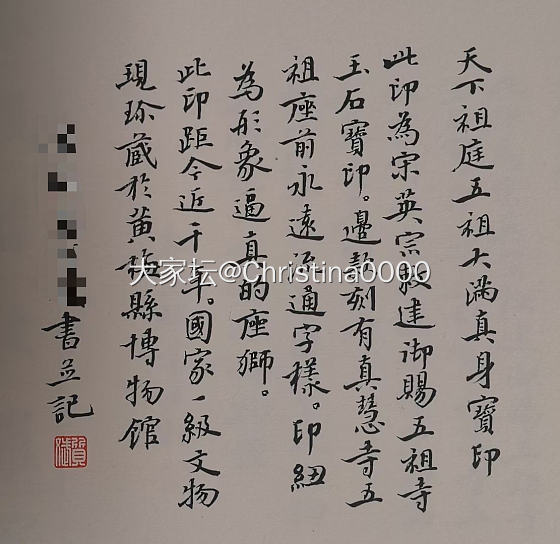 天下祖庭五祖大满真身寶印
此印為宗英宗敕建御賜五祖寺
玉石寶印。邊款刻有真慧寺五
祖座前永遠流通字樣。印紐
為形象逼真的座獅。
此印距今近千年。國家一級文物
現珎藏於黄梅縣博物館
書並記
大家坛@Christina0000